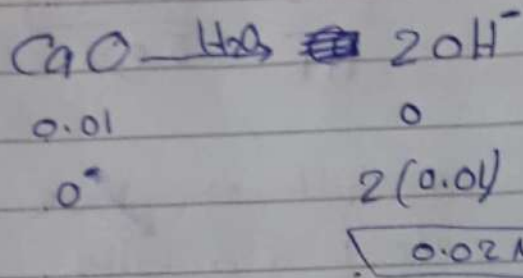 CaO H2O 2OH⁻
0.01 0
0 2(0.01)
0.02 M